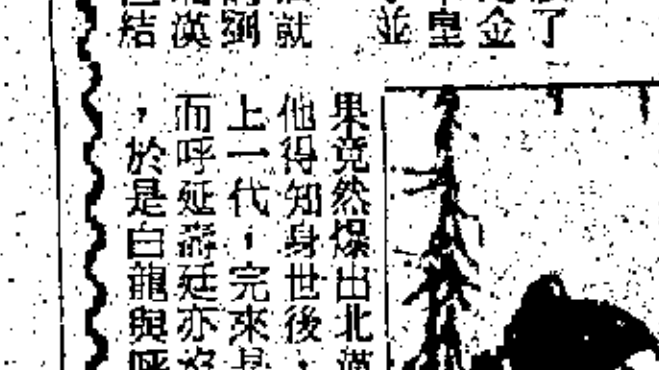 了
金
皇
並
就
劉
漢
結
果竟然爆出北
他得知身世後，
上一代，完來
而呼延壽廷亦
，於是白龍與呼